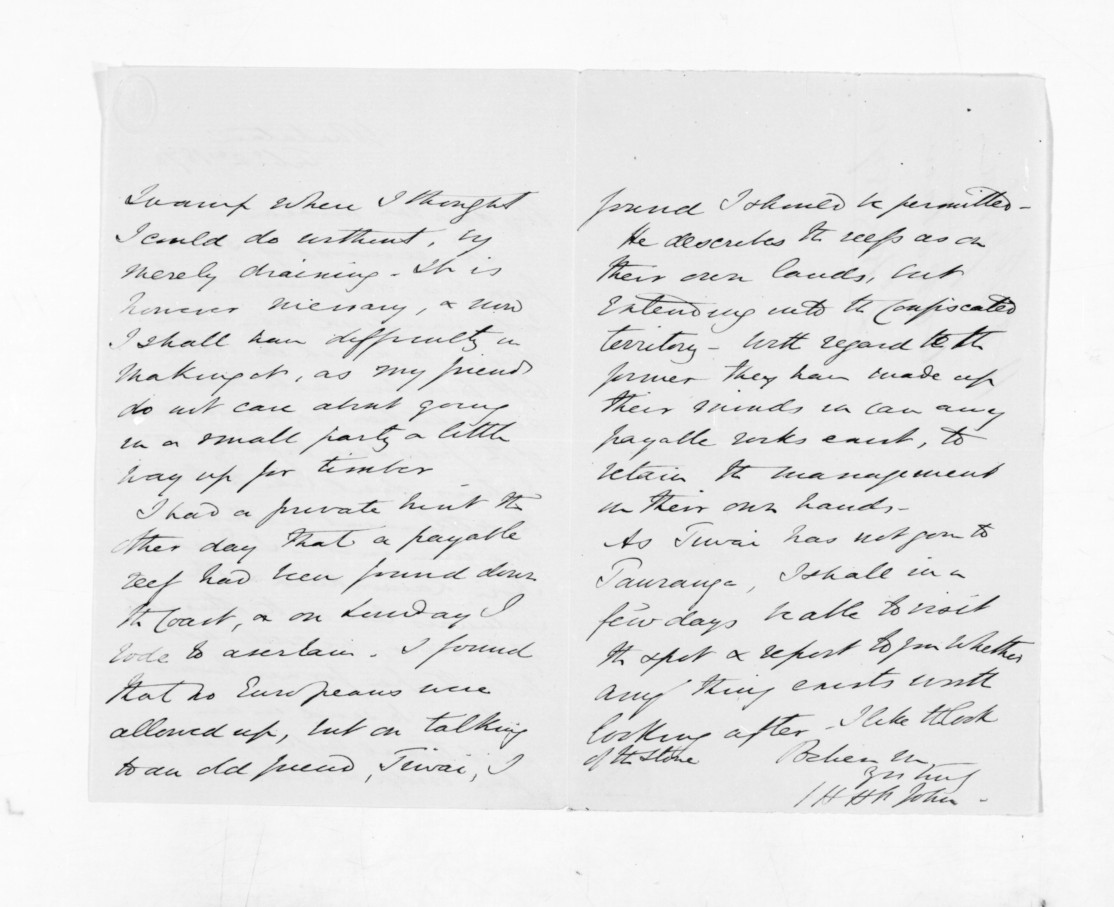 Swamp where I thought
I could do without, by
merely draining - It is
however necessary, & now
I shall have difficulty in
making it, as my friends
do not care about going
in a small party a little
way up for timber
I had a private hint the
other day that a payable
reef had been found down
the Coast, & on Sunday I
rode to ascertain - I found
that no Europeans were
allowed up, but on talking
to an old friend, Tiwai, I
found I should be permitted -
He describes the reefs as on
their own lands, but
Extending into the Confiscated
territory - With regard to the
former they have made up
their minds in case any
payable rocks exist, to
retain the management
in their own hands -
As Tiwai has not gone to
Tauranga, I shall in a
few days be able to visit
the spot & report to you whether
any thing exists worth
looking after - I like the look
of the stone
Believe me,
yrs truly
J H H St John -